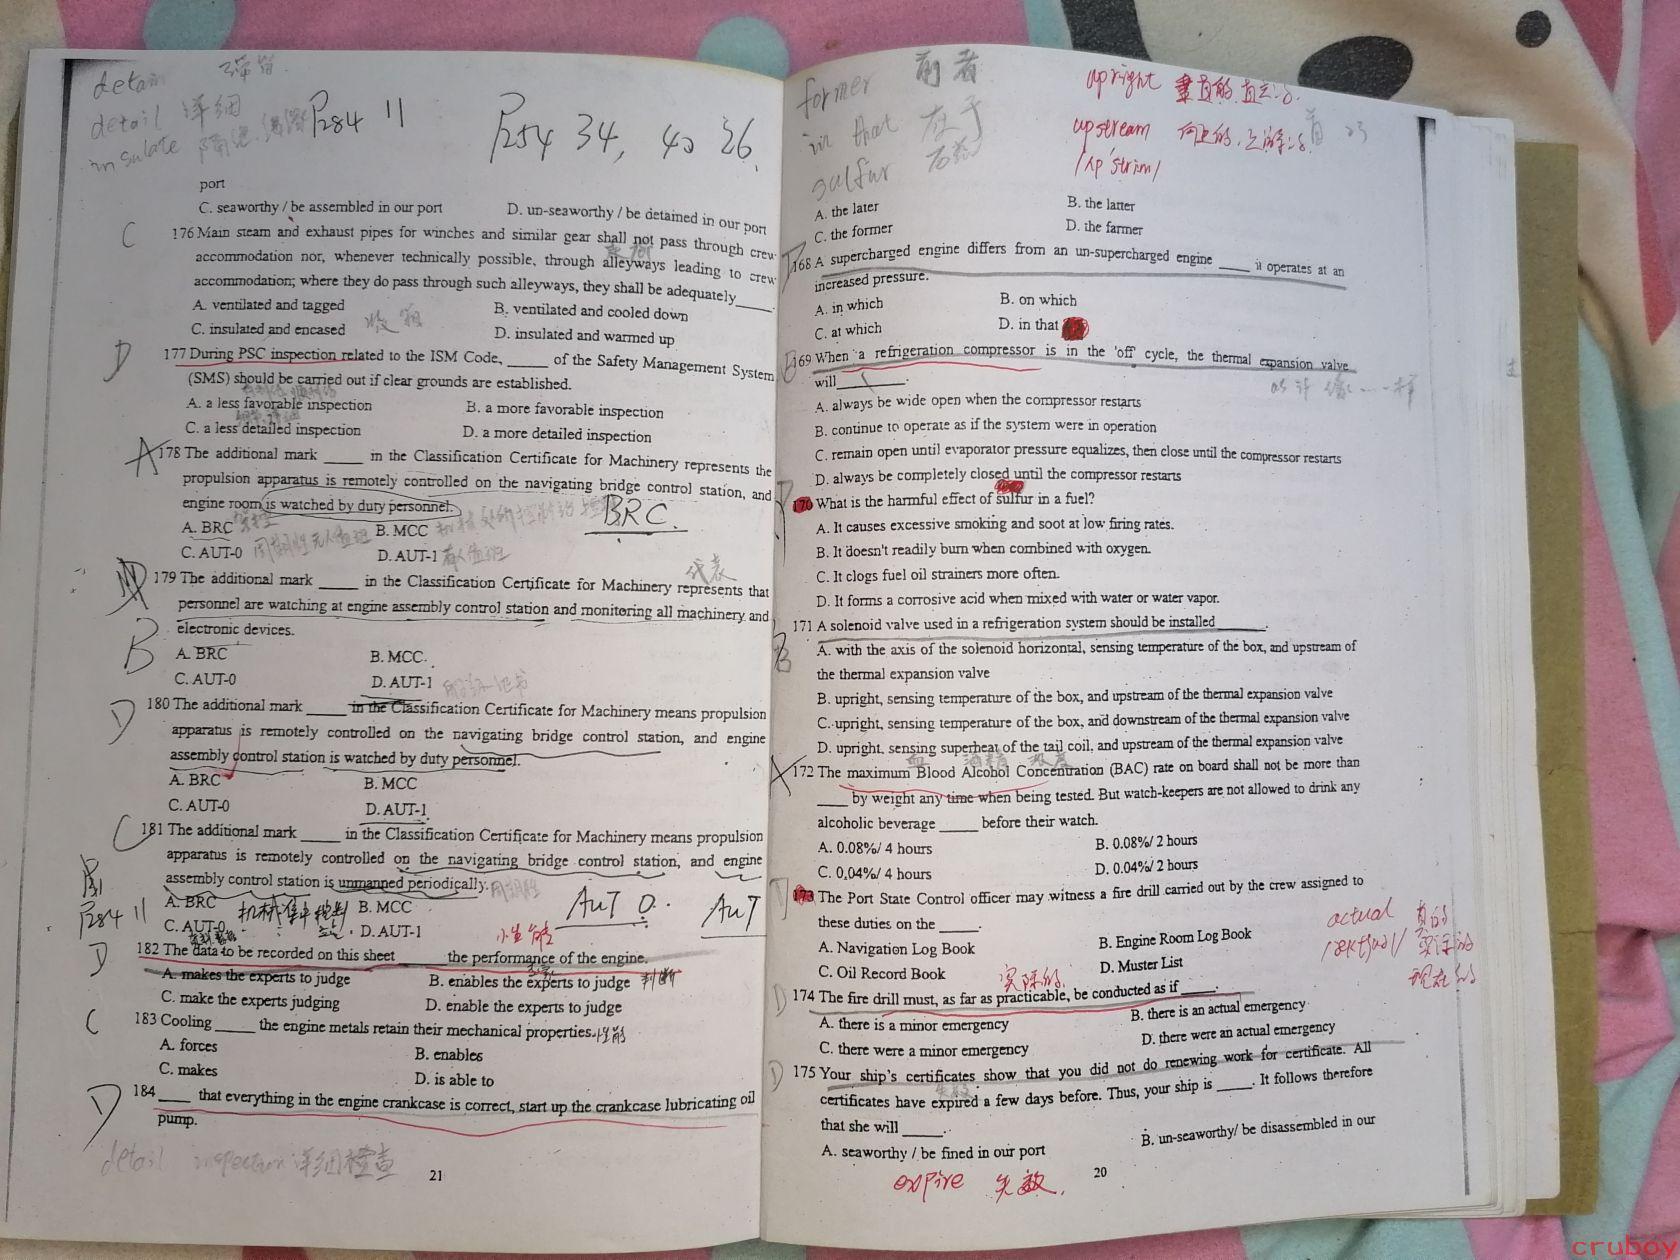 detain
detail 详细
insulate
P284 11
P254 34, 40 36,
port
C. seaworthy / be assembled in our port
D. un-seaworthy / be detained in our port
C
176 Main steam and exhaust pipes for winches and similar gear shall not pass through crew
accommodation nor, whenever technically possible, through alleyways leading to crew
accommodation; where they do pass through such alleyways, they shall be adequately_____.
A. ventilated and tagged
B. ventilated and cooled down
C. insulated and encased
D. insulated and warmed up
D
177 During PSC inspection related to the ISM Code, _____ of the Safety Management System
(SMS) should be carried out if clear grounds are established.
A. a less favorable inspection
B. a more favorable inspection
C. a less detailed inspection
D. a more detailed inspection
A
178 The additional mark _____ in the Classification Certificate for Machinery represents the
propulsion apparatus is remotely controlled on the navigating bridge control station, and
engine room is watched by duty personnel.
BRC.
A. BRC
B. MCC
C. AUT-0 周期性无人值班
D. AUT-1 有人值班
代表
179 The additional mark _____ in the Classification Certificate for Machinery represents that
personnel are watching at engine assembly control station and monitoring all machinery and
electronic devices.
B
A. BRC
B. MCC.
C. AUT-0
D. AUT-1
D
180 The additional mark _____ in the Classification Certificate for Machinery means propulsion
apparatus is remotely controlled on the navigating bridge control station, and engine
assembly control station is watched by duty personnel.
A. BRC
B. MCC
C. AUT-0
D. AUT-1
C
181 The additional mark _____ in the Classification Certificate for Machinery means propulsion
apparatus is remotely controlled on the navigating bridge control station, and engine
assembly control station is unmanned periodically. 周期性
P284 11
AUT 0.
AUT
A. BRC
B. MCC
C. AUT-0
D. AUT-1
D
182 The data to be recorded on this sheet _____ the performance of the engine.
A. makes the experts to judge
B. enables the experts to judge 判断
C. make the experts judging
D. enable the experts to judge
C
183 Cooling _____ the engine metals retain their mechanical properties. 性能
A. forces
B. enables
C. makes
D. is able to
D
184 ____ that everything in the engine crankcase is correct, start up the crankcase lubricating oil
pump.
detail inspection 详细检查
21
former 前者
in that 在于
sulfur
upright 垂直的.直立的.
upstream
/ʌp'strim/
A. the later
B. the latter
C. the former
D. the farmer
168 A supercharged engine differs from an un-supercharged engine _____ it operates at an
increased pressure.
A. in which
B. on which
C. at which
D. in that
169 When a refrigeration compressor is in the 'off' cycle, the thermal expansion valve
will_________.
A. always be wide open when the compressor restarts
B. continue to operate as if the system were in operation
C. remain open until evaporator pressure equalizes, then close until the compressor restarts
D. always be completely closed until the compressor restarts
170 What is the harmful effect of sulfur in a fuel?
A. It causes excessive smoking and soot at low firing rates.
B. It doesn't readily burn when combined with oxygen.
C. It clogs fuel oil strainers more often.
D. It forms a corrosive acid when mixed with water or water vapor.
171 A solenoid valve used in a refrigeration system should be installed_______.
B
A. with the axis of the solenoid horizontal, sensing temperature of the box, and upstream of
the thermal expansion valve
B. upright, sensing temperature of the box, and upstream of the thermal expansion valve
C. upright, sensing temperature of the box, and downstream of the thermal expansion valve
D. upright, sensing superheat of the tail coil, and upstream of the thermal expansion valve
血 酒精 浓度
172 The maximum Blood Alcohol Concentration (BAC) rate on board shall not be more than
____ by weight any time when being tested. But watch-keepers are not allowed to drink any
alcoholic beverage _____ before their watch.
A. 0.08%/ 4 hours
B. 0.08%/ 2 hours
C. 0.04%/ 4 hours
D. 0.04%/ 2 hours
D
173 The Port State Control officer may witness a fire drill carried out by the crew assigned to
these duties on the _____.
A. Navigation Log Book
B. Engine Room Log Book
C. Oil Record Book
D. Muster List
actual 真的
实际的
现在的
实际的.
D
174 The fire drill must, as far as practicable, be conducted as if _____.
A. there is a minor emergency
B. there is an actual emergency
C. there were a minor emergency
D. there were an actual emergency
D
175 Your ship's certificates show that you did not do renewing work for certificate. All
certificates have expired a few days before. Thus, your ship is _____. It follows therefore
that she will _____.
A. seaworthy / be fined in our port
B. un-seaworthy/ be disassembled in our
expire 失效.
20
cruboy